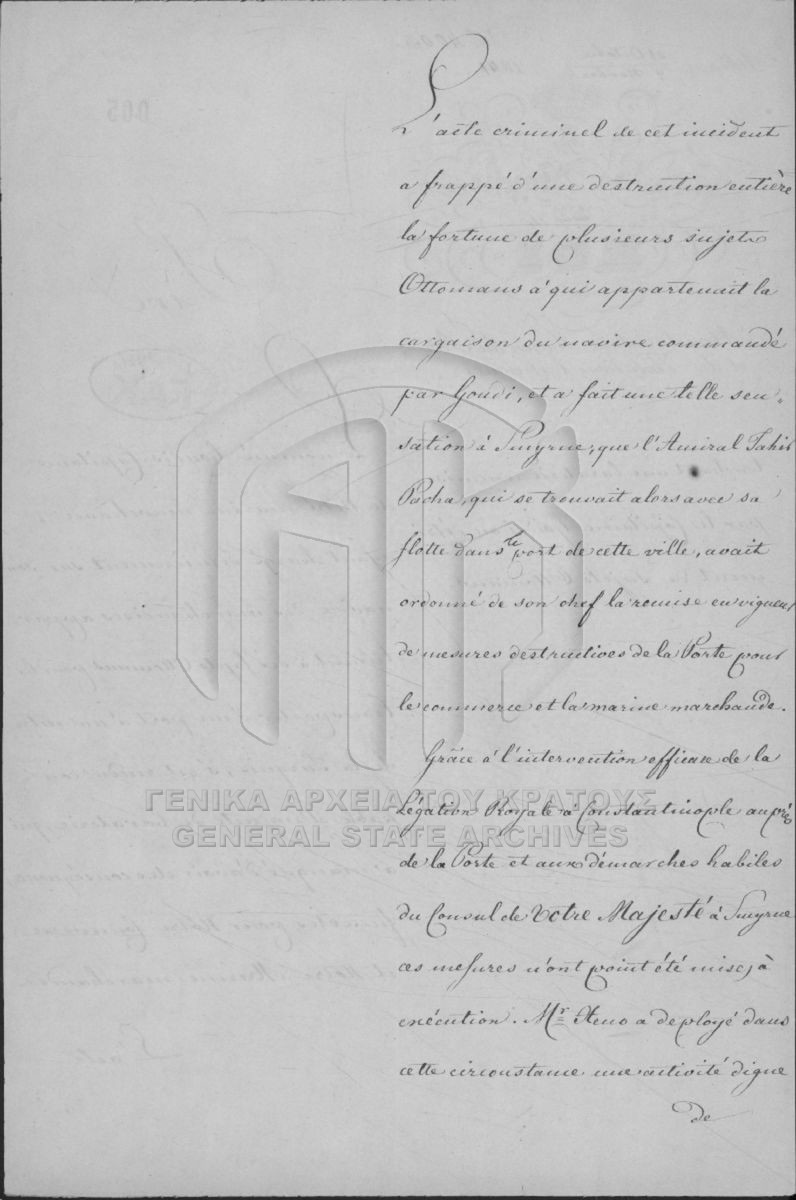 L'acte criminel de cet incident
a frappé d'une destruction entière
la fortune de plusieurs sujets
Ottomans à qui appartenait la
cargaison du navire commandé
par Goudi, et a fait une telle sen„
sation à Smyrne, que l'Amiral Tahir
Pacha, qui se trouvait alors avec sa
flotte dans le port de cette ville, avait
ordonné de son chef la remise en vigueur
de mesures destructives de la Porte pour
le commerce et la marine marchande.
Grâce à l'intervention efficace de la
Légation Royale à Constantinople auprès
ΓΕΝΙΚΑ ΑΡΧΕΙΑ ΤΟΥ ΚΡΑΤΟΥΣ
GENERAL STATE ARCHIVES
de la Porte et aux démarches habiles
du Consul de Votre Majesté à Smyrne
ces mesures n'ont point été mises à
exécution. Mr a deployé dans
cette circonstance une activité digne
de